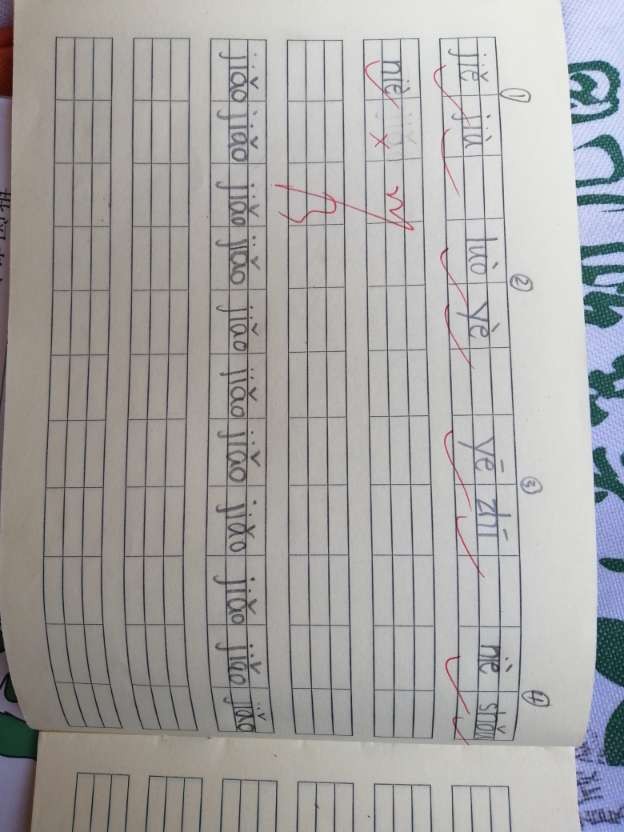 ① ② ③ ④
jiě jiù luò yè yē zhī
niè
jiǎo jiǎo jiǎo jiǎo jiǎo jiǎo jiǎo jiǎo jiǎo jiǎo jiǎo